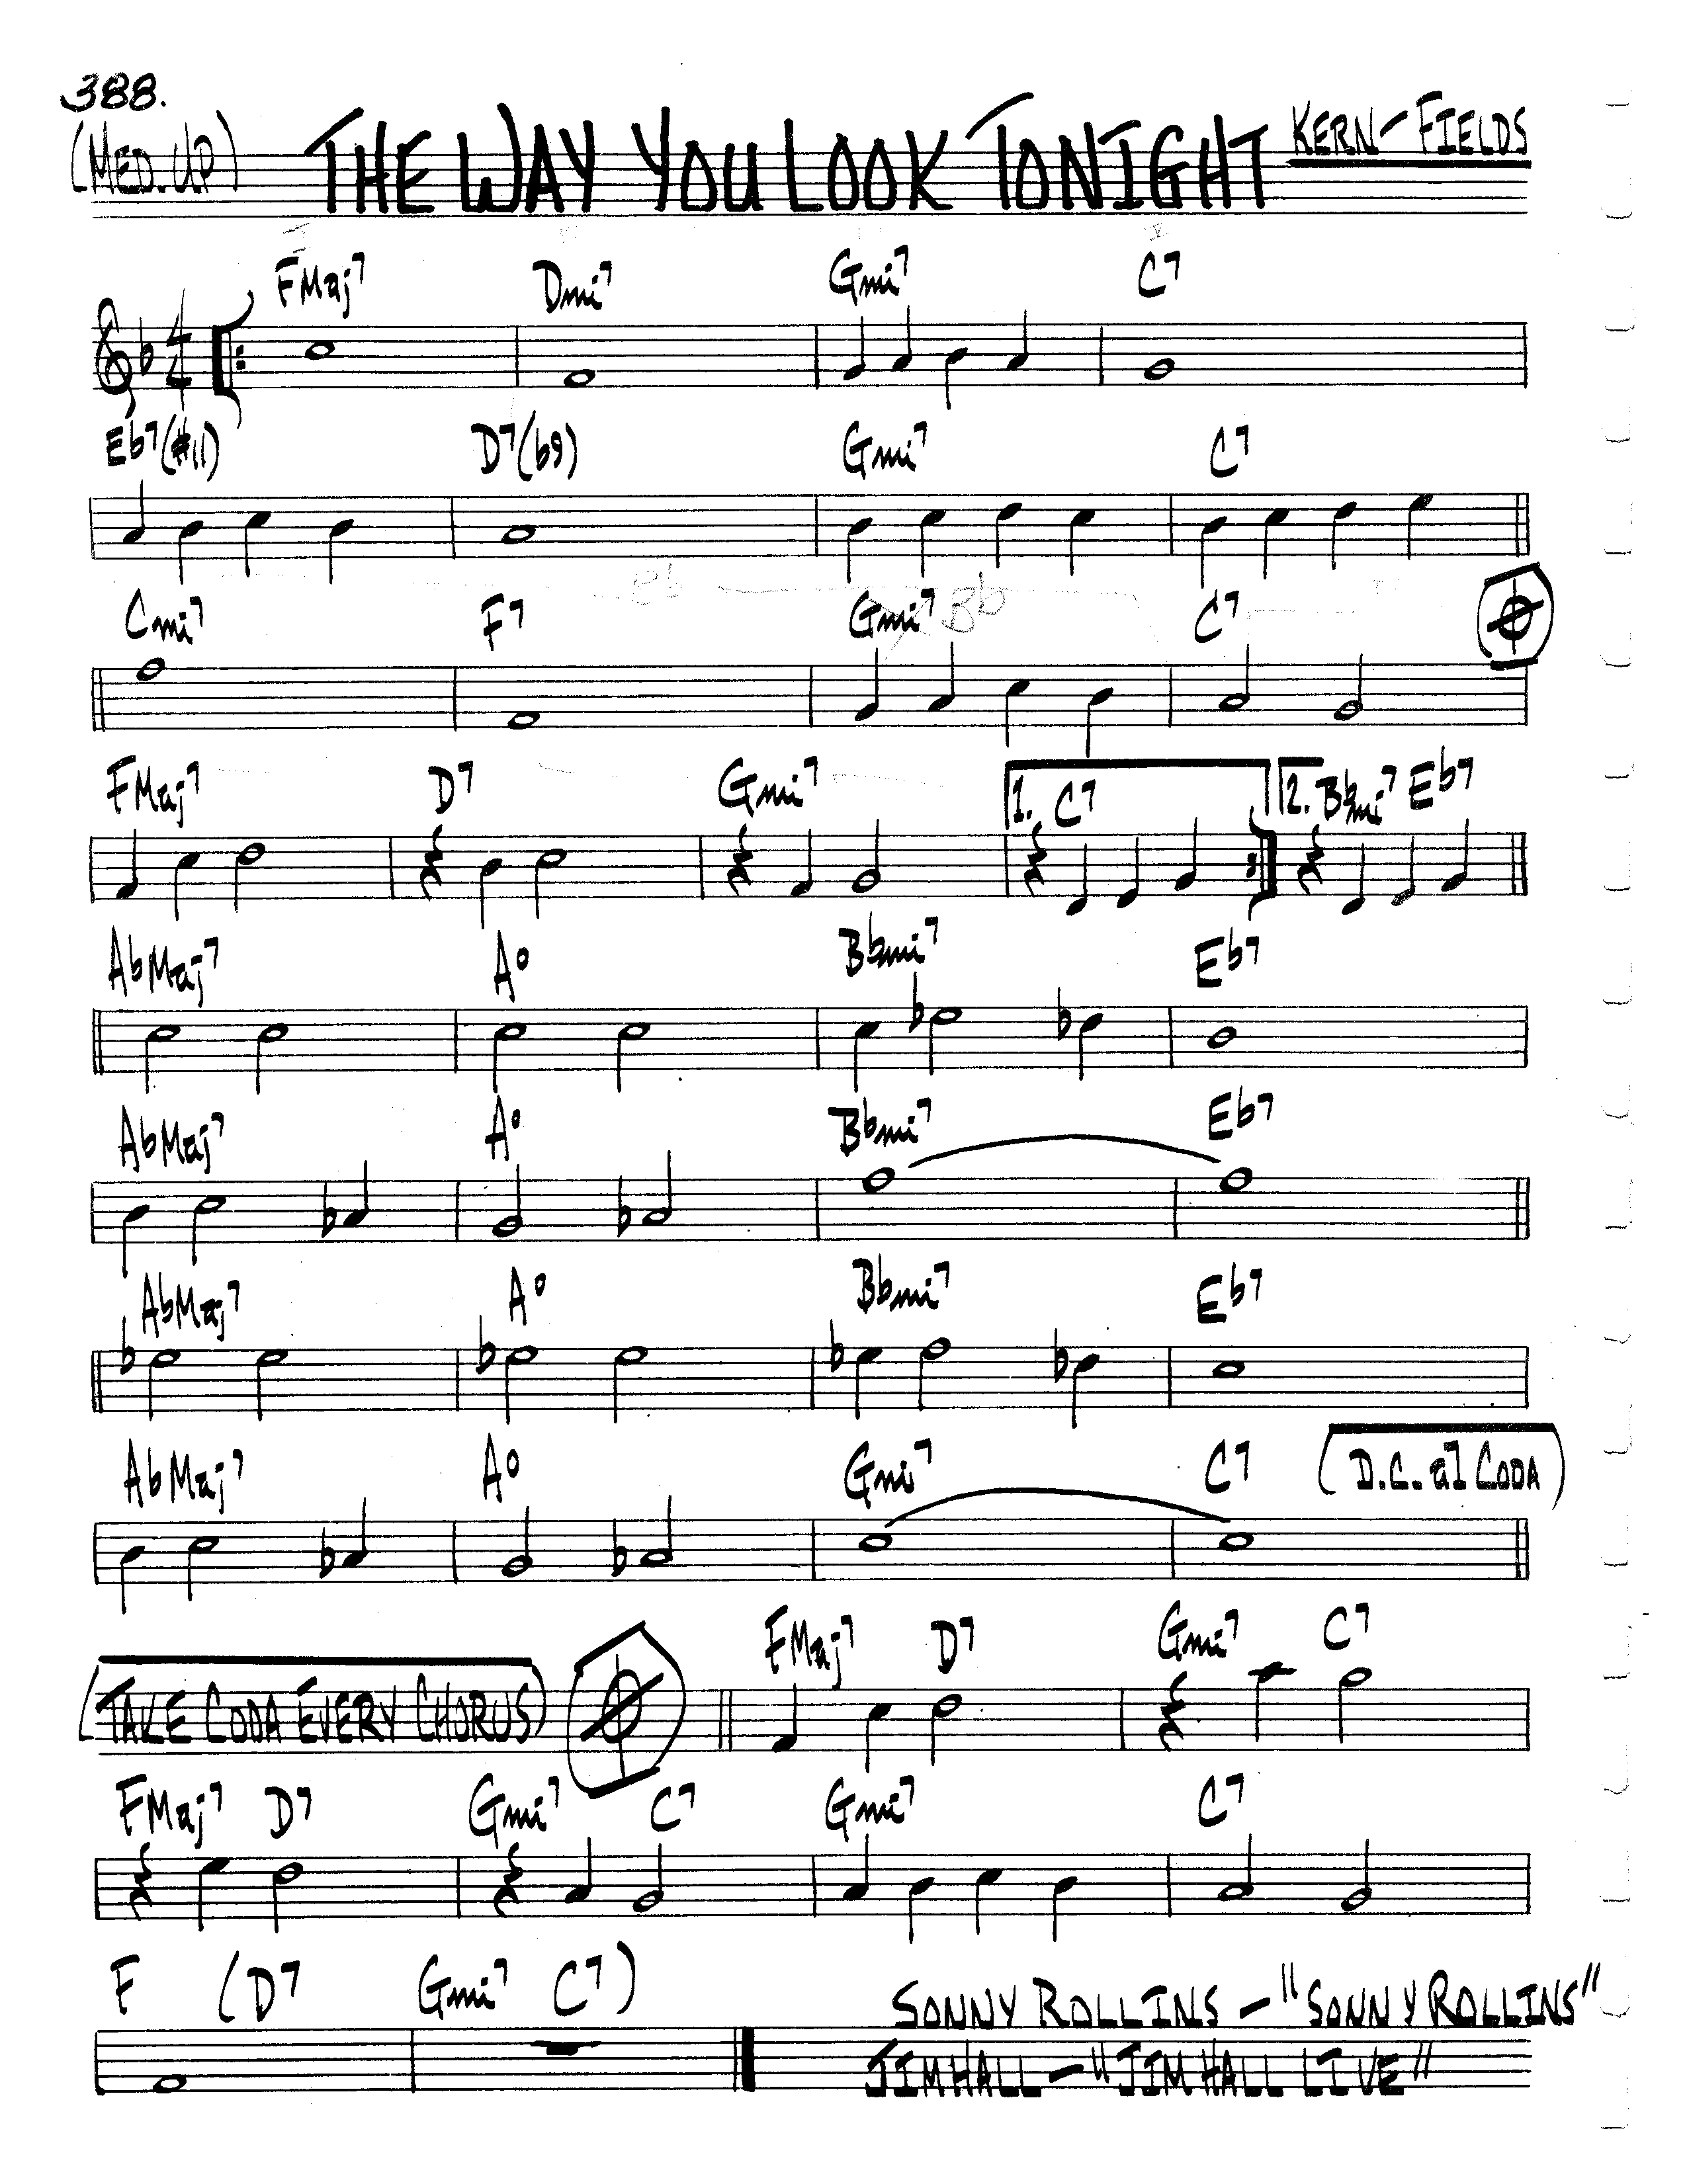 388.
(MED. UP) THE WAY YOU LOOK TONIGHT KERN-FIELDS
FMaj7 Dmi7 Gmi7 C7
4/4
Eb7(#11) D7(b9) Gmi7 C7
Cmi7 F7 Gmi7 Bb C7
FMaj7 D7 Gmi7 1. C7 2. Bbmi7 Eb7
AbMaj7 A° Bbmi7 Eb7
AbMaj7 A° Bbmi7 Eb7
AbMaj7 A° Bbmi7 Eb7
AbMaj7 A° Gmi7 C7 (D.C. al CODA)
(TAKE CODA EVERY CHORUS) FMaj7 D7 Gmi7 C7
FMaj7 D7 Gmi7 C7 Gmi7 C7
F (D7 Gmi7 C7)
SONNY ROLLINS - "SONNY ROLLINS"
JIM HALL - "JIM HALL LIVE"